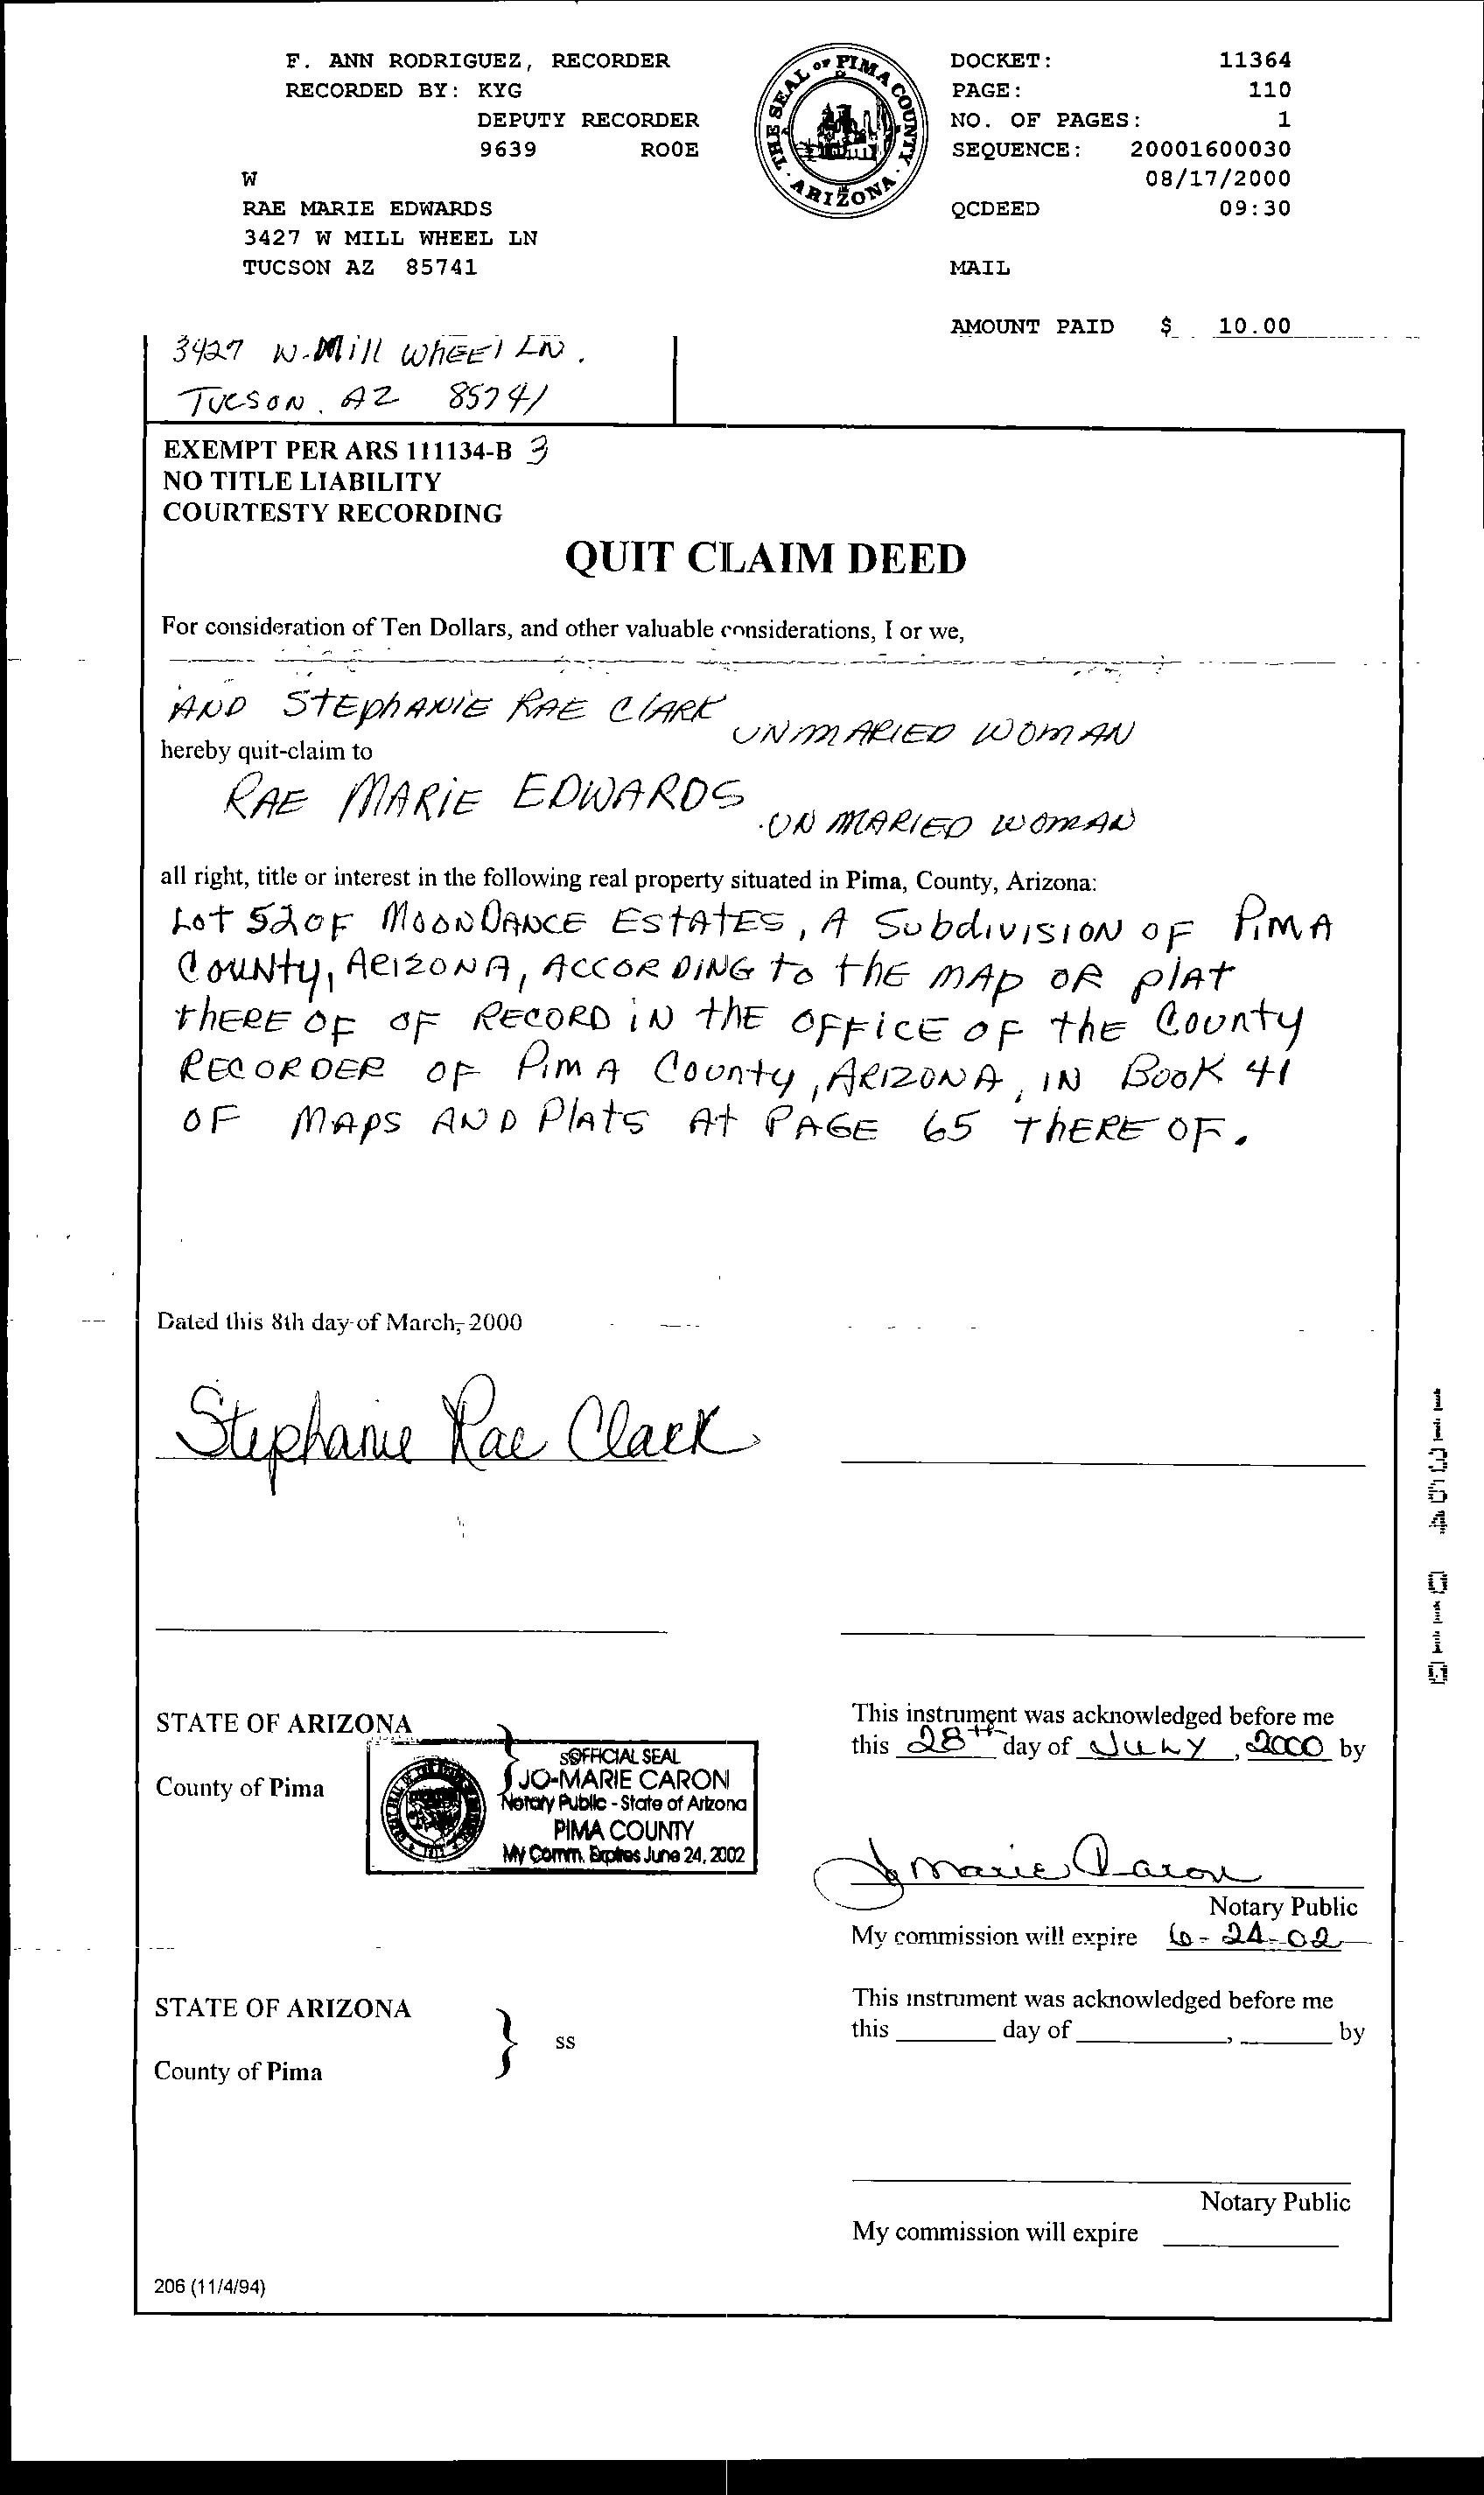 F. ANN RODRIGUEZ, RECORDER
RECORDED BY: KYG
DEPUTY RECORDER
9639 ROOE
W
RAE MARIE EDWARDS
3427 W MILL WHEEL LN
TUCSON AZ 85741
THE SEAL OF PIMA COUNTY · ARIZONA ·
DOCKET: 11364
PAGE: 110
NO. OF PAGES: 1
SEQUENCE: 20001600030
08/17/2000
QCDEED 09:30
MAIL
AMOUNT PAID $ 10.00
3427 W. Mill WhEEl LN.
TUCSON, AZ 85741
EXEMPT PER ARS 111134-B 3
NO TITLE LIABILITY
COURTESTY RECORDING
QUIT CLAIM DEED
For consideration of Ten Dollars, and other valuable considerations, I or we,
AND StEphANiE RAE ClARK UNMARIED WOMAN
hereby quit-claim to
RAE MARiE EDWARDS UN MARIED WOMAN
all right, title or interest in the following real property situated in Pima, County, Arizona:
Lot 52 OF MOONDANCE EStAtES, A SubdiVISION OF PiMA
COUNty, ARIZONA, ACCORDiNG to thE MAP OR plAt
thERE OF OF RECORD iN thE OFFiCE OF thE County
RECORDER OF PiMA County, ARIZONA, IN BooK 41
OF MAPS AND PlAtS At PAGE 65 thERE OF.
Dated this 8th day of March, 2000
Stephanie Rae Clark
STATE OF ARIZONA
County of Pima
OFFICIAL SEAL
JO-MARIE CARON
Notary Public - State of Arizona
PIMA COUNTY
My Comm. Expires June 24, 2002
This instrument was acknowledged before me
this 28th day of JULY, 2000 by
Jo Marie Caron
Notary Public
My commission will expire 6-24-02
STATE OF ARIZONA
ss
County of Pima
This instrument was acknowledged before me
this day of , by
Notary Public
My commission will expire
206 (11/4/94)